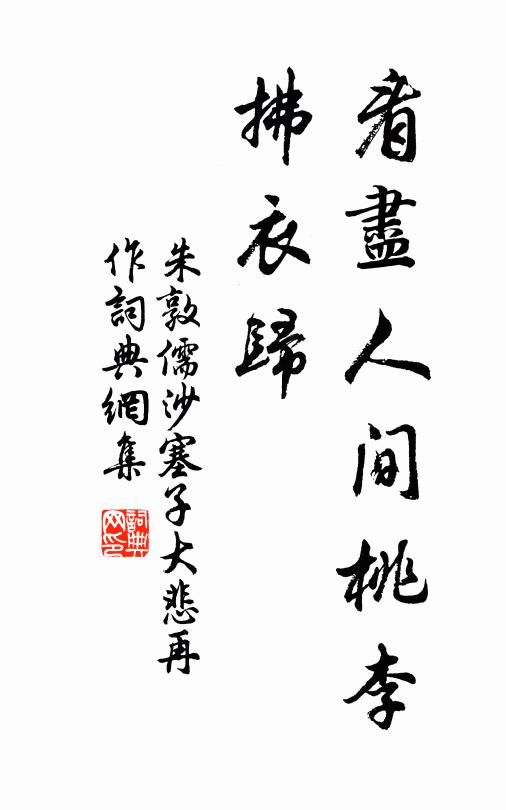 看盡人间桃李
拂衣歸
朱敦儒沙塞子大悲再
作詞典網集
詞典网印